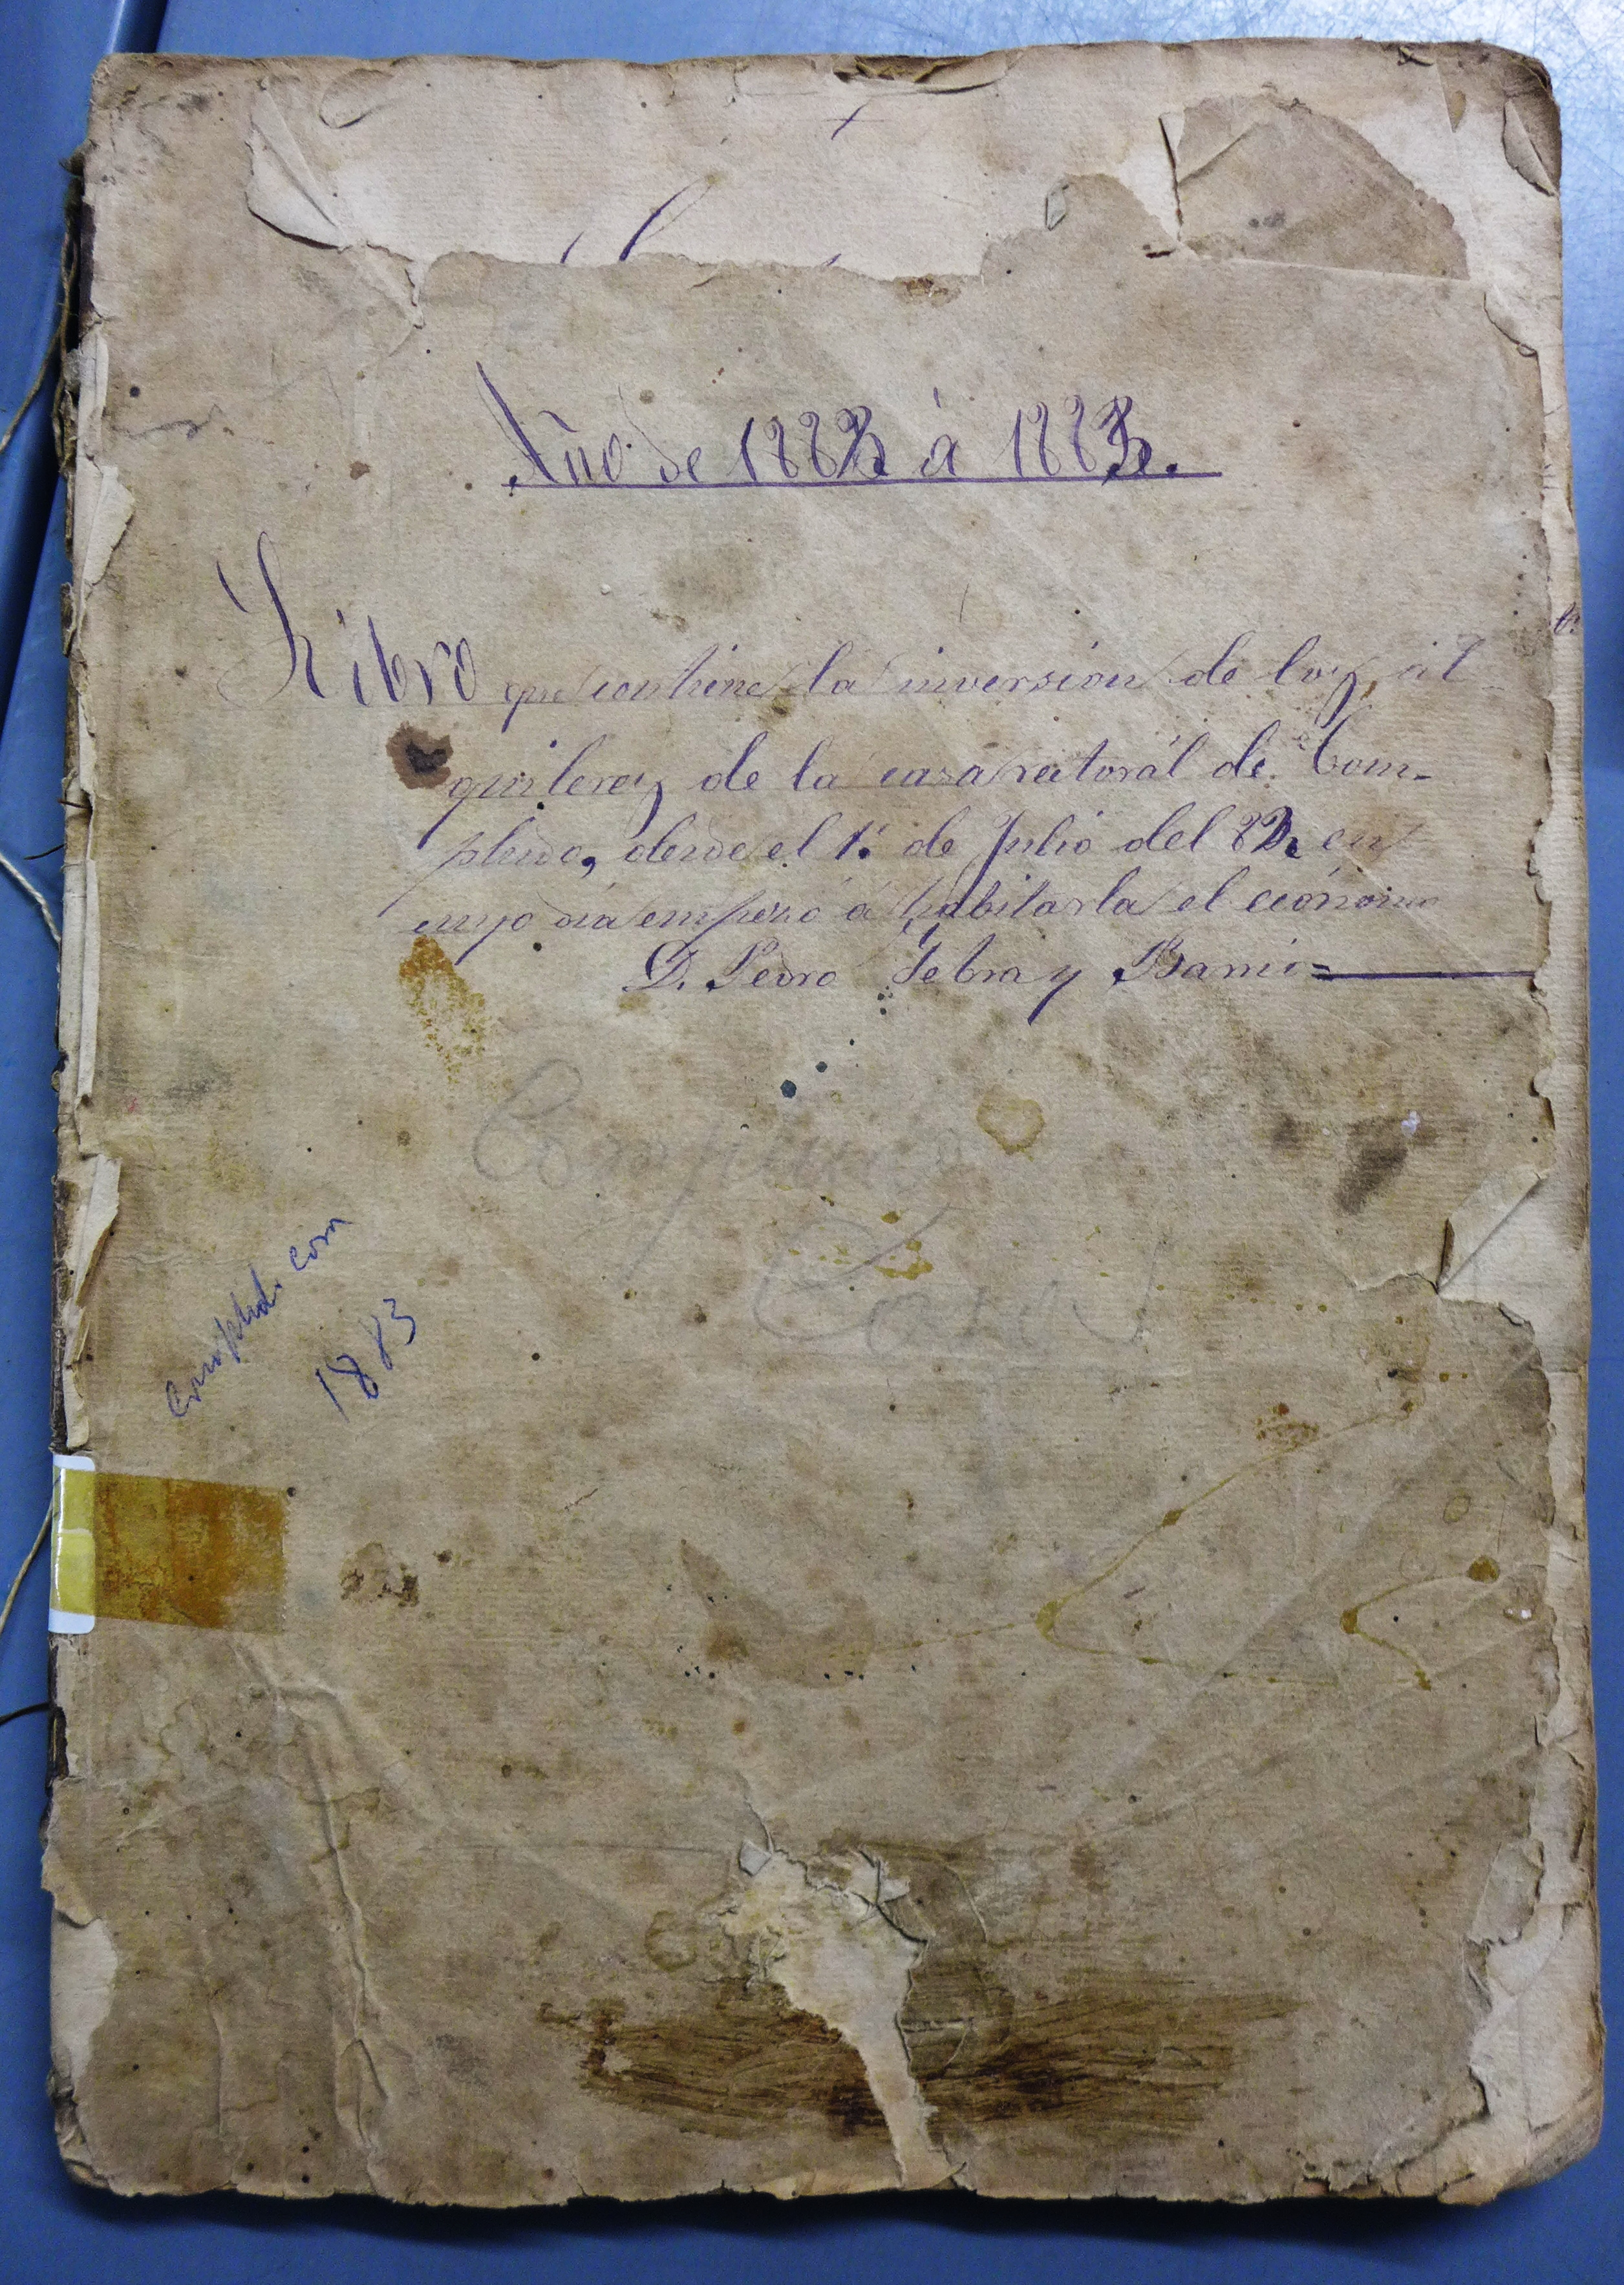 Año de 1882 á 1883.
Libro que contiene la inversion de los al-
quileres de la casa rectoral de Com-
pludo, desde el 1.º de Julio del 82 en
cuyo dia empezó á habitarla el ecónomo
D. Pedro Tebra y
Compludo
1883